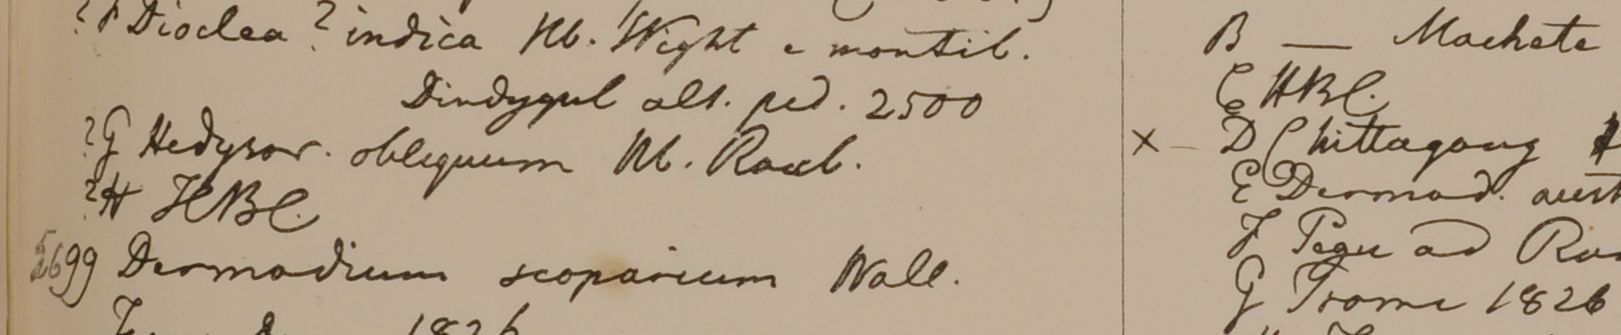 ? F Dioclea ? indica Hb. Wight e montib.
Dindygul alt. ped. 2500
? G Hedysar. obliquum Hb. Roxb.
? H HBC.
5699 Dermodium scoparium Wall.
1826
B — Machete
C HBC.
× D Chittagong
E Dermod.
F Pegu ad
G Prome 1826